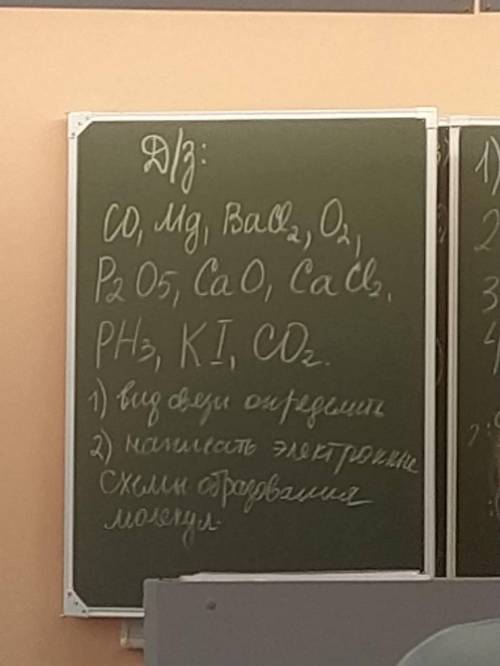 Д/з:
CO, Mg, BaCl₂, O₂,
P₂O₅, CaO, CaCl₂,
PH₃, KI, CO₂.
1) вид связи определить
2) написать электронные
схемы образования
молекул.
1)
2
3
4